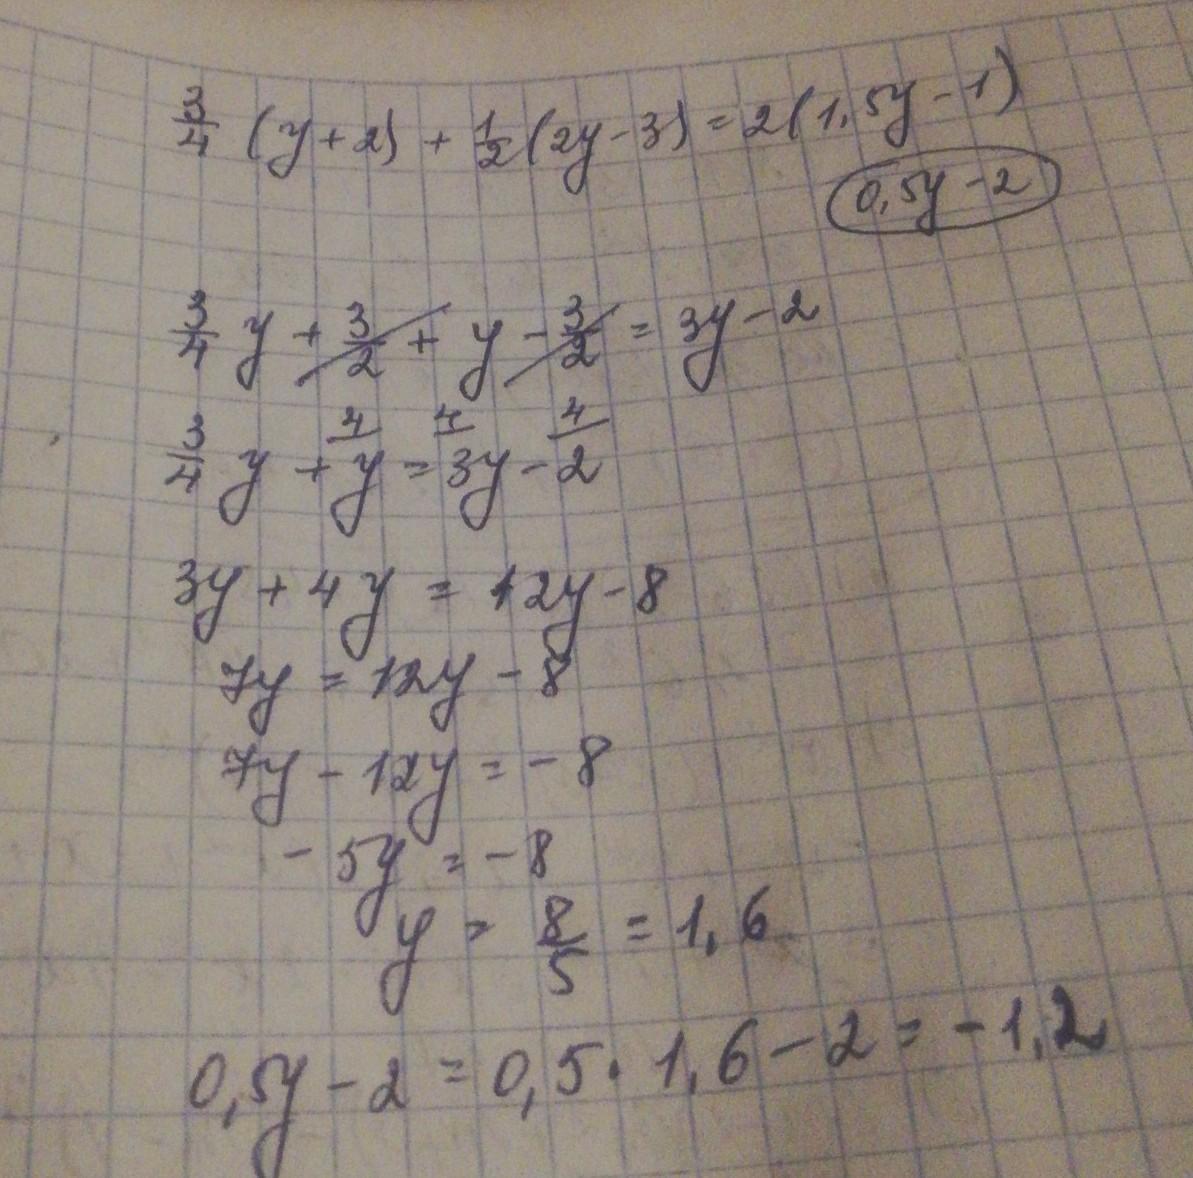 3/4 (y+2) + 1/2 (2y-3) = 2(1,5y-1)
0,5y-2
3/4 y + 3/2 + y - 3/2 = 3y-2
4 4 4
3/4 y + y = 3y - 2
3y + 4y = 12y - 8
7y = 12y - 8
7y - 12y = -8
-5y = -8
y = 8/5 = 1,6
0,5y - 2 = 0,5 · 1,6 - 2 = -1,2